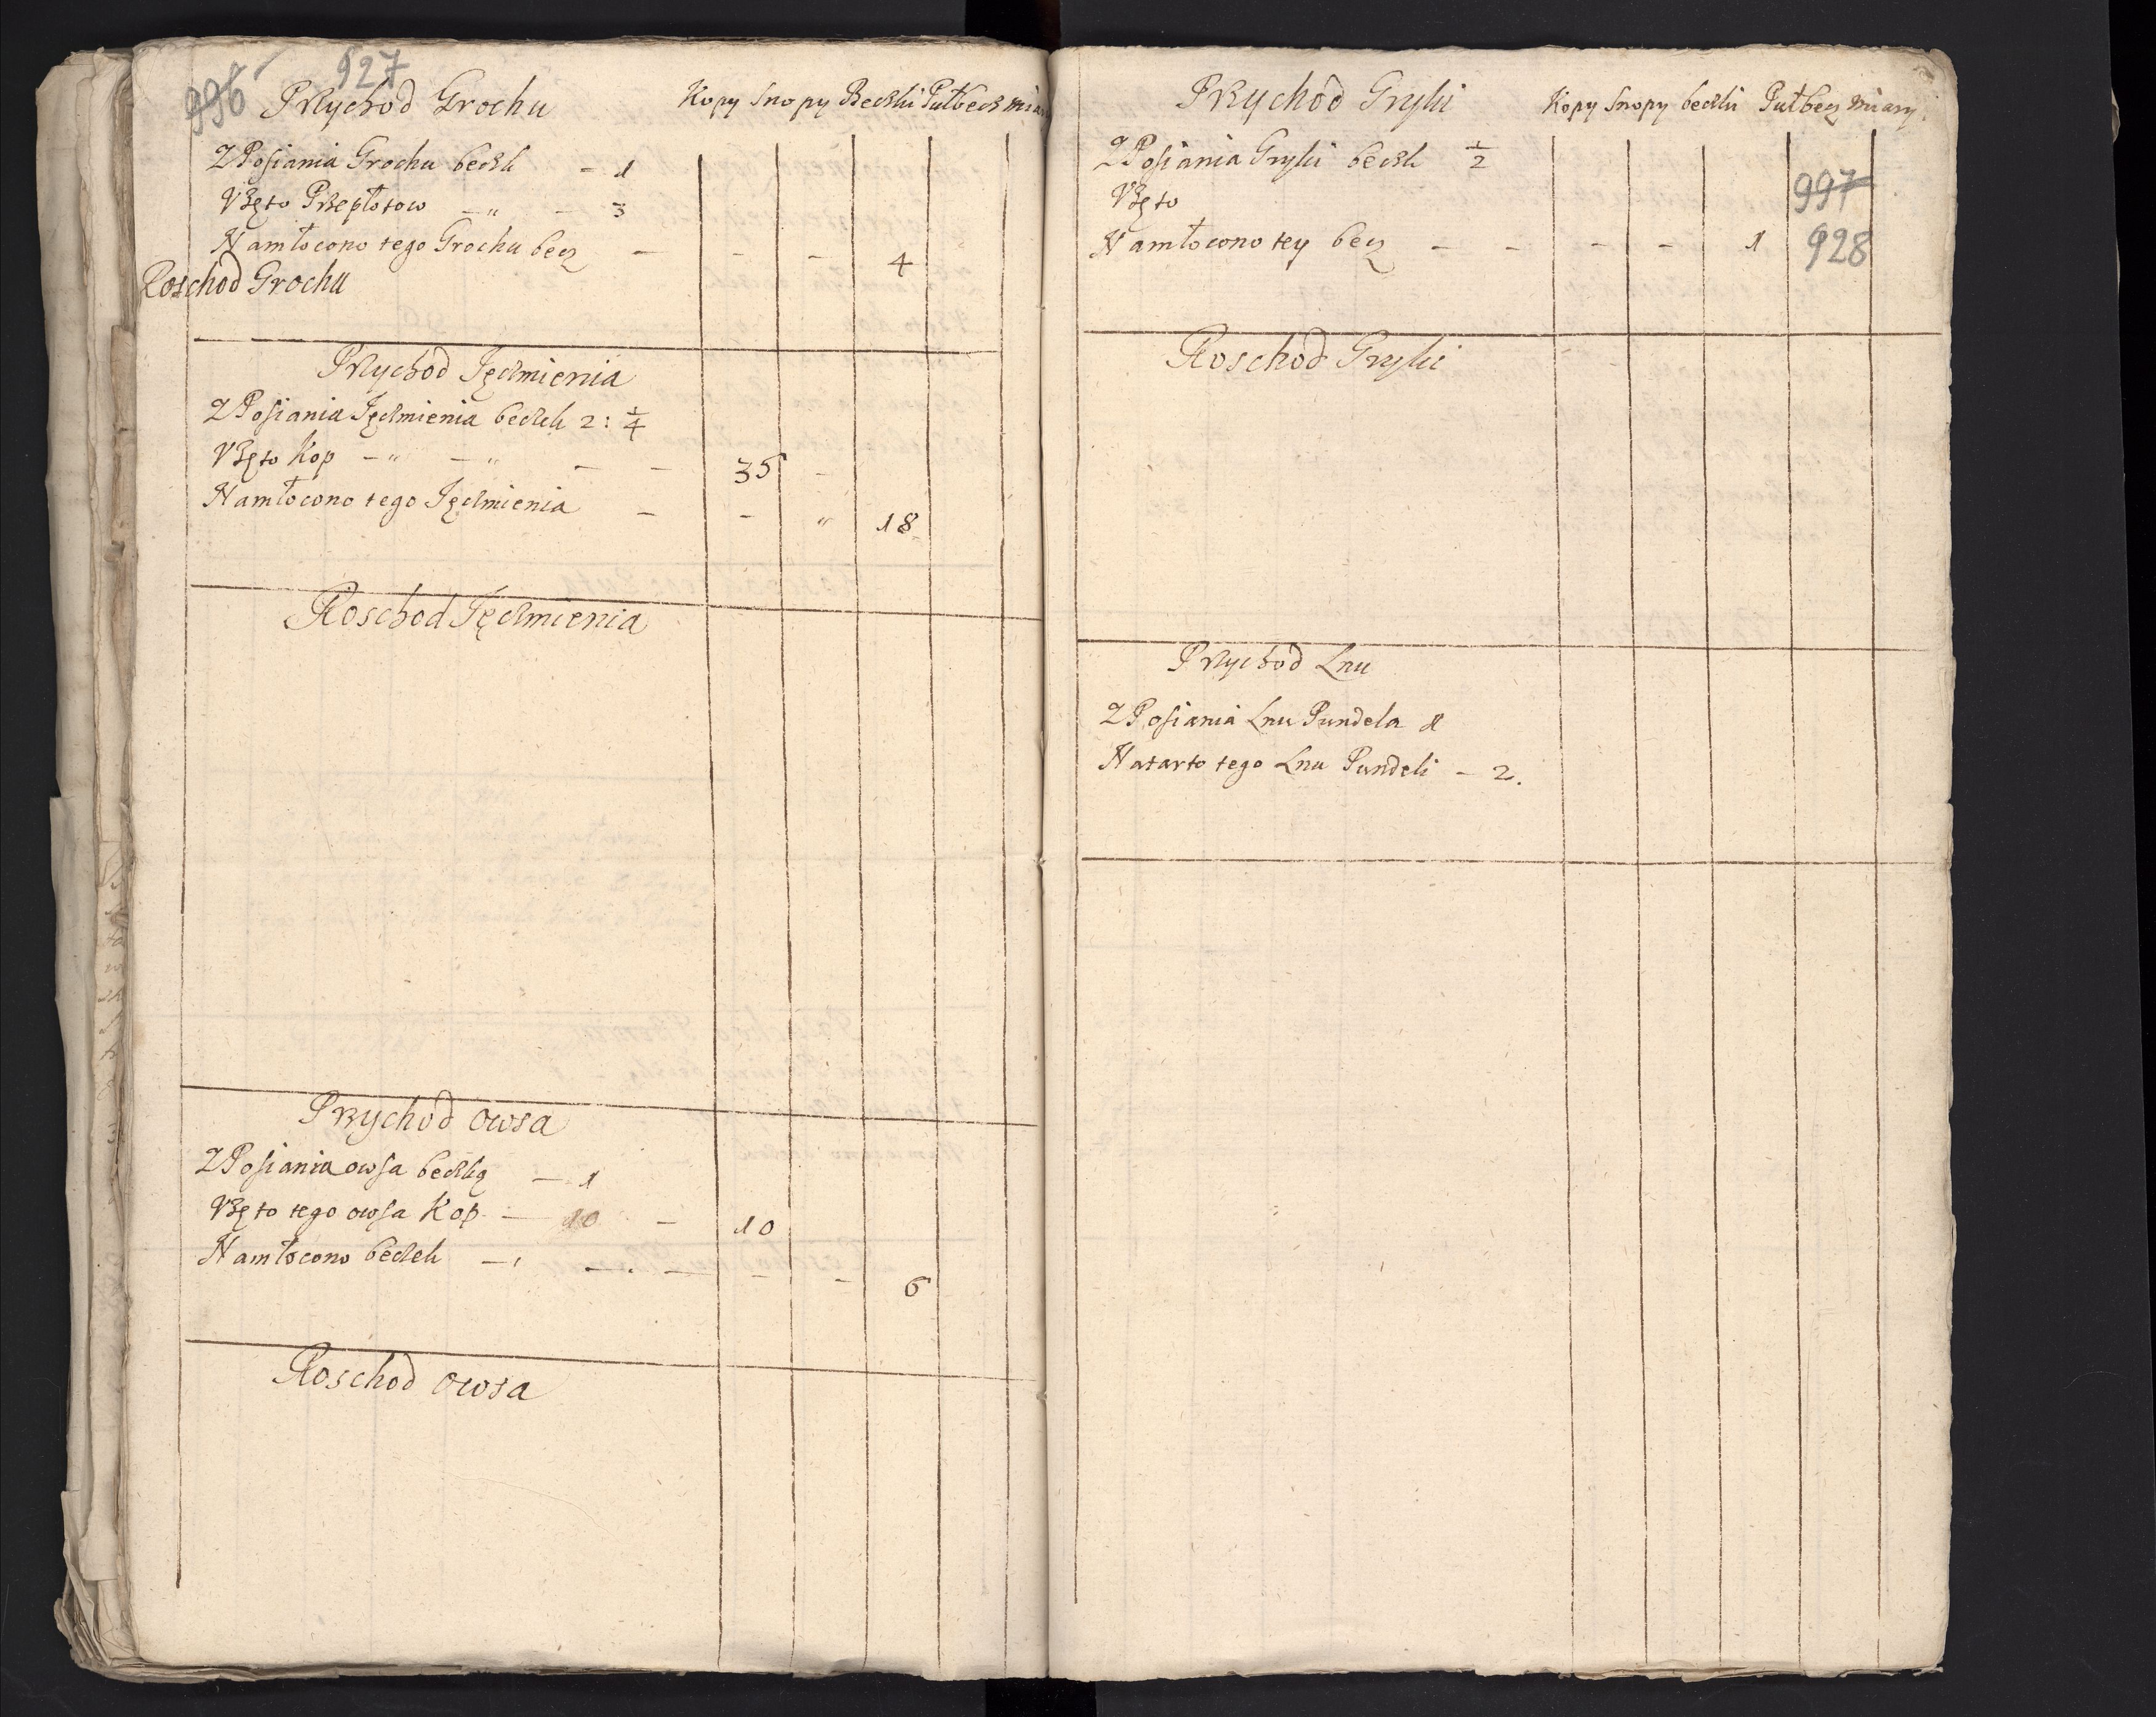 996 927
Przychod Grochu Kopy Snopy Beczki Pułbecz Miar
Z Posiania Grochu beczk – 1
Vżęto Przepłotow – „ – 3
Namłocono tego Grochu becz – – – 4
Roschod Grochu
Przychod Jęczmienia
Z Posiania Jęczmienia beczek 2: 1/4
Vżęto Kop – „ – „ – – 35 –
Namłocono tego Jęczmienia – – „ 18
Roschod Jęczmienia
Przychod owsa
Z Posiania owsa beczkę – 1
Vżęto tego owsa Kop – 10 – 10
Namłocono beczek – – – – – 6
Roschod owsa
Przychod Gryki Kopy Snopy beczki Pułbecz Miary
Z Posiania Gryki beczk 1/2
997
Vżęto
Namłocono tey becz – – – – 1 928
Roschod Gryki
Przychod Lnu
Z Posiania Lnu Pundela 1
Natarto tego Lnu Pundeli – 2.